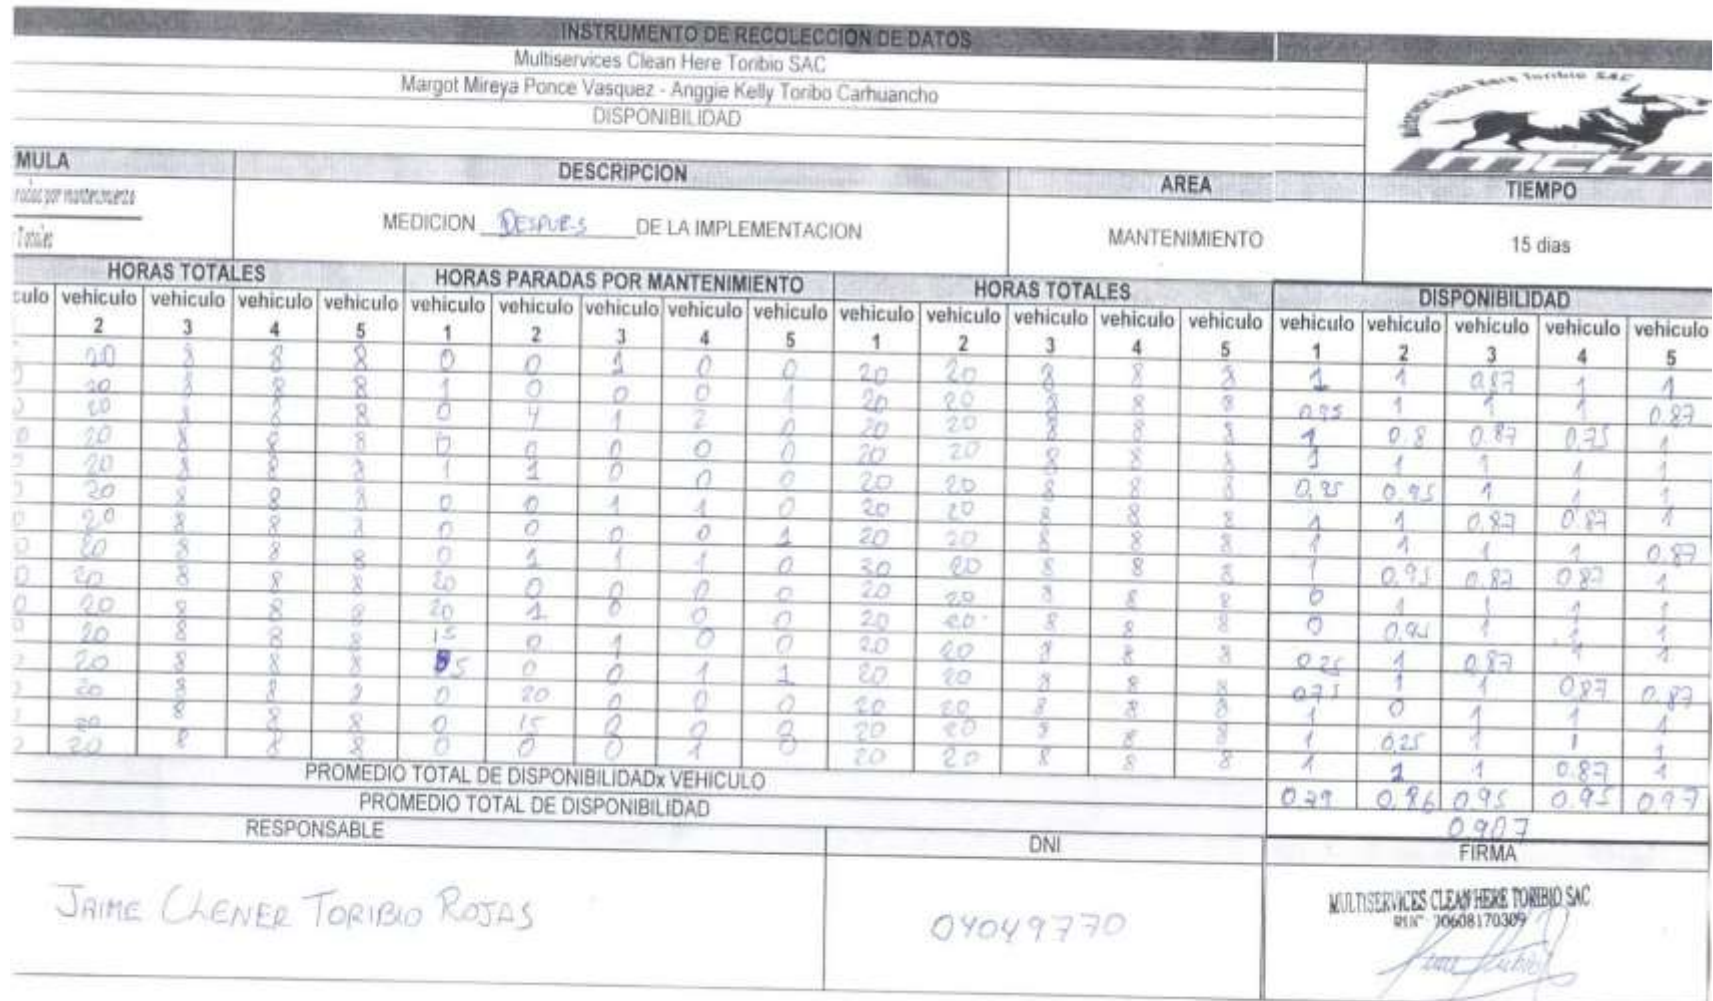 INSTRUMENTO DE RECOLECCION DE DATOS
Multiservices Clean Here Toribio SAC
Margot Mireya Ponce Vasquez - Anggie Kelly Toribo Carhuancho
DISPONIBILIDAD
MCHT
MULA DESCRIPCION AREA TIEMPO
por mantenimiento
Totales
MEDICION DESPUES DE LA IMPLEMENTACION MANTENIMIENTO 15 dias
HORAS TOTALES HORAS PARADAS POR MANTENIMIENTO HORAS TOTALES DISPONIBILIDAD
culo vehiculo vehiculo vehiculo vehiculo vehiculo vehiculo vehiculo vehiculo vehiculo vehiculo vehiculo vehiculo vehiculo vehiculo vehiculo vehiculo vehiculo vehiculo vehiculo
2 3 4 5 1 2 3 4 5 1 2 3 4 5 1 2 3 4 5
20 8 8 8 0 0 1 0 0 20 20 8 8 8 1 1 0.87 1 1
20 8 8 8 1 0 0 0 1 20 20 8 8 8 0.95 1 1 1 0.87
20 8 8 8 0 4 1 2 0 20 20 8 8 8 1 0.8 0.87 0.75 1
20 8 8 8 0 0 0 0 0 20 20 8 8 8 1 1 1 1 1
20 8 8 8 1 1 0 0 0 20 20 8 8 8 0.95 0.95 1 1 1
20 8 8 8 0 0 1 1 0 20 20 8 8 8 1 1 0.87 0.87 1
20 8 8 8 0 0 0 0 1 20 20 8 8 8 1 1 1 1 0.87
20 8 8 8 0 1 1 1 0 20 20 8 8 8 1 0.95 0.87 0.87 1
20 8 8 8 20 0 0 0 0 20 20 8 8 8 0 1 1 1 1
20 8 8 8 20 1 0 0 0 20 20 8 8 8 0 0.95 1 1 1
20 8 8 8 15 0 1 0 0 20 20 8 8 8 0.25 1 0.87 1 1
20 8 8 8 5 0 0 1 1 20 20 8 8 8 0.75 1 1 0.87 0.87
20 8 8 8 0 20 0 0 0 20 20 8 8 8 1 0 1 1 1
20 8 8 8 0 15 0 0 0 20 20 8 8 8 1 0.25 1 1 1
20 8 8 8 0 0 0 1 0 20 20 8 8 8 1 1 1 0.87 1
PROMEDIO TOTAL DE DISPONIBILIDADx VEHICULO 0.79 0.86 0.95 0.95 0.97
PROMEDIO TOTAL DE DISPONIBILIDAD 0.907
RESPONSABLE DNI FIRMA
JAIME CLENER TORIBIO ROJAS 04049770
MULTISERVICES CLEAN HERE TORIBIO SAC
20608170309